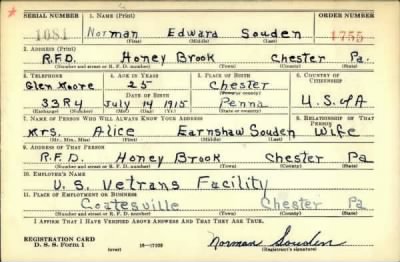 SERIAL NUMBER 1. NAME (Print) ORDER NUMBER
1081 Norman Edward Souden 1755
(First) (Middle) (Last)
2. ADDRESS (Print)
R.F.D. Honey Brook Chester Pa.
(Number and street or R. F. D. number) (Town) (County) (State)
3. TELEPHONE 4. AGE IN YEARS 5. PLACE OF BIRTH 6. COUNTRY OF CITIZENSHIP
Glen Moore 25 Chester
DATE OF BIRTH (Town or county)
33R4 July 14 1915 Penna U.S. of A
(Exchange) (Number) (Mo.) (Day) (Yr.) (State or country)
7. NAME OF PERSON WHO WILL ALWAYS KNOW YOUR ADDRESS 8. RELATIONSHIP OF THAT PERSON
Mrs. Alice Earnshaw Souden Wife
(Mr., Mrs., Miss) (First) (Middle) (Last)
9. ADDRESS OF THAT PERSON
R.F.D. Honey Brook Chester Pa
(Number and street or R. F. D. number) (Town) (County) (State)
10. EMPLOYER'S NAME
U. S. Vetrans Facility
11. PLACE OF EMPLOYMENT OR BUSINESS
Coatesville Chester Pa
(Number and street or R. F. D. number) (Town) (County) (State)
I AFFIRM THAT I HAVE VERIFIED ABOVE ANSWERS AND THAT THEY ARE TRUE.
REGISTRATION CARD
D. S. S. Form 1 (over) Norman Souden
(Registrant's signature)